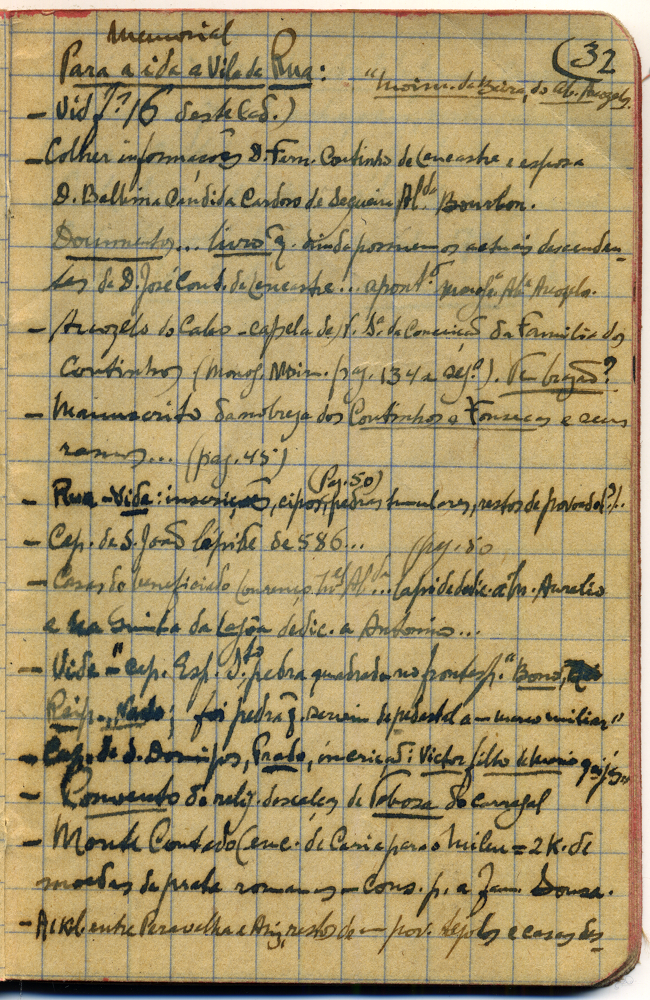 Memorial
(32
Para a ida a Vila da Rua:
"Moim. da Beira, do Ab. Arozelo.
- Vid fˢ? 16 deste Cad.)
- Colher informacões D. Fern. Coutinho de Lencastre e esposa
D. Balbina Cândida Cardoso de Sequeira Bourbon.
Documentos... livro q. ainda possuem os actuais descenden-
tes de D. José Cout. de Lencastre... apont.
- Arcozelo do Cabo - capela de N. Sª. da Conceição da Familia dos
Coutinhos (Monog. Moim. pag. 134 e seg.ᵗ). Tem brazão?
- Manuscrito da nobreza dos Coutinhos e Fonsecas e seus
ramos... (pag. 45)
(Pag. 50)
- Rua - Vide: inscrições, cipos, pedras tumulares, restos de povoado
- Cap. de S. João lápide de 586... pg. 50
- Casas do beneficiado Lourenço ... lapide dedic. a M. Aurelio
e na Quinta da Lagôa dedic. a Antonino...
- Vide - "cap. Esp. Sto, pedra quadrada no frontesp. "Bono,
Reip., Nato; foi pedra q. serviu de pedestal a um marco miliar"
- Cap. de S. Domingos, Prado, inscrição: Victor filho de
- Convento de relig. descalças de Tobosa do Carregal
- Monte Contado (enc. de Caria para o Mileu = 2 K. de
moedas de prata romanas - Cons. p. a Fam. Sousa.
- A 1 Kl. entre Peravelha e Ariz, restos de um pov. tejolos e casas des-